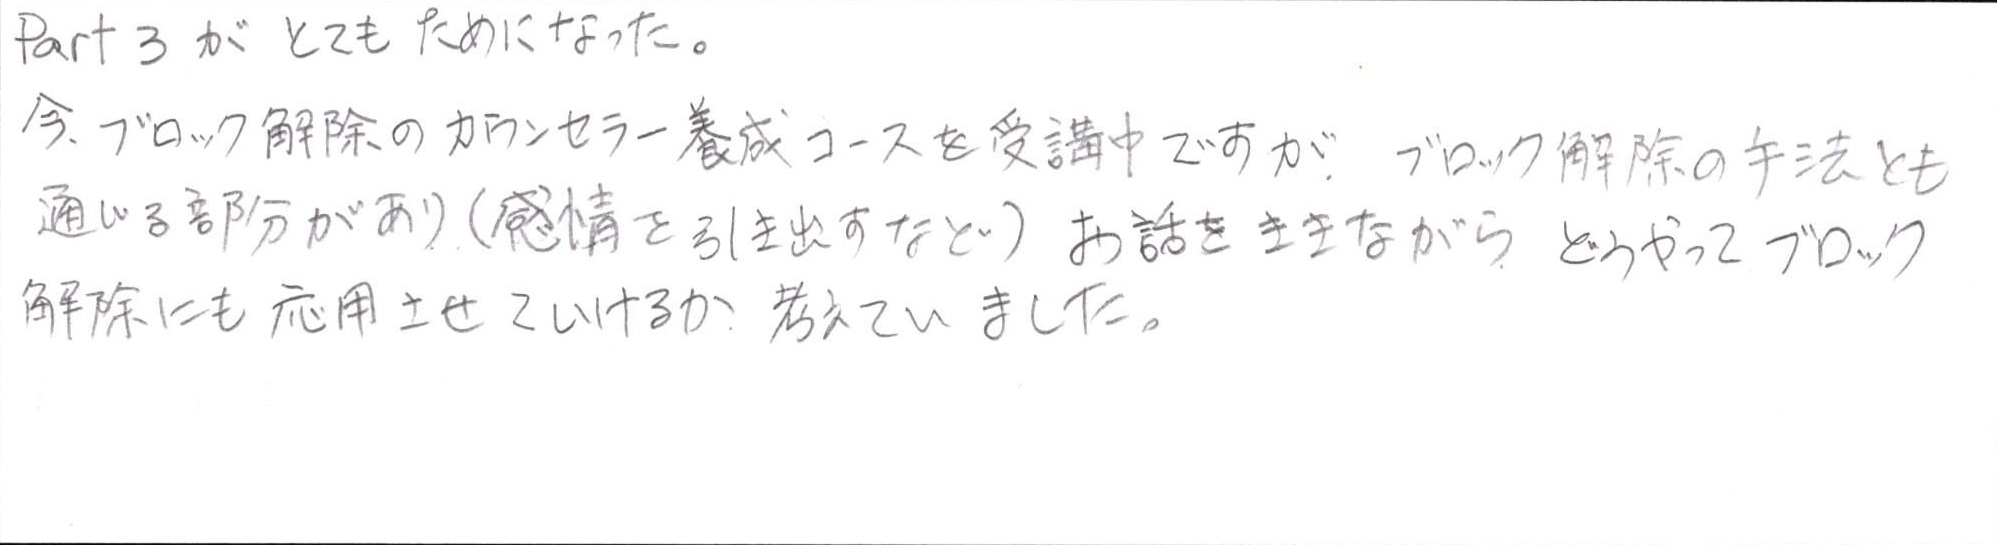 Part 3 が とてもためになった。
今、ブロック解除のカウンセラー養成コースを受講中ですが、ブロック解除の手法とも
通じる部分があり、(感情を引き出すなど) お話をききながら、どうやってブロック
解除にも応用させていけるか、考えていました。